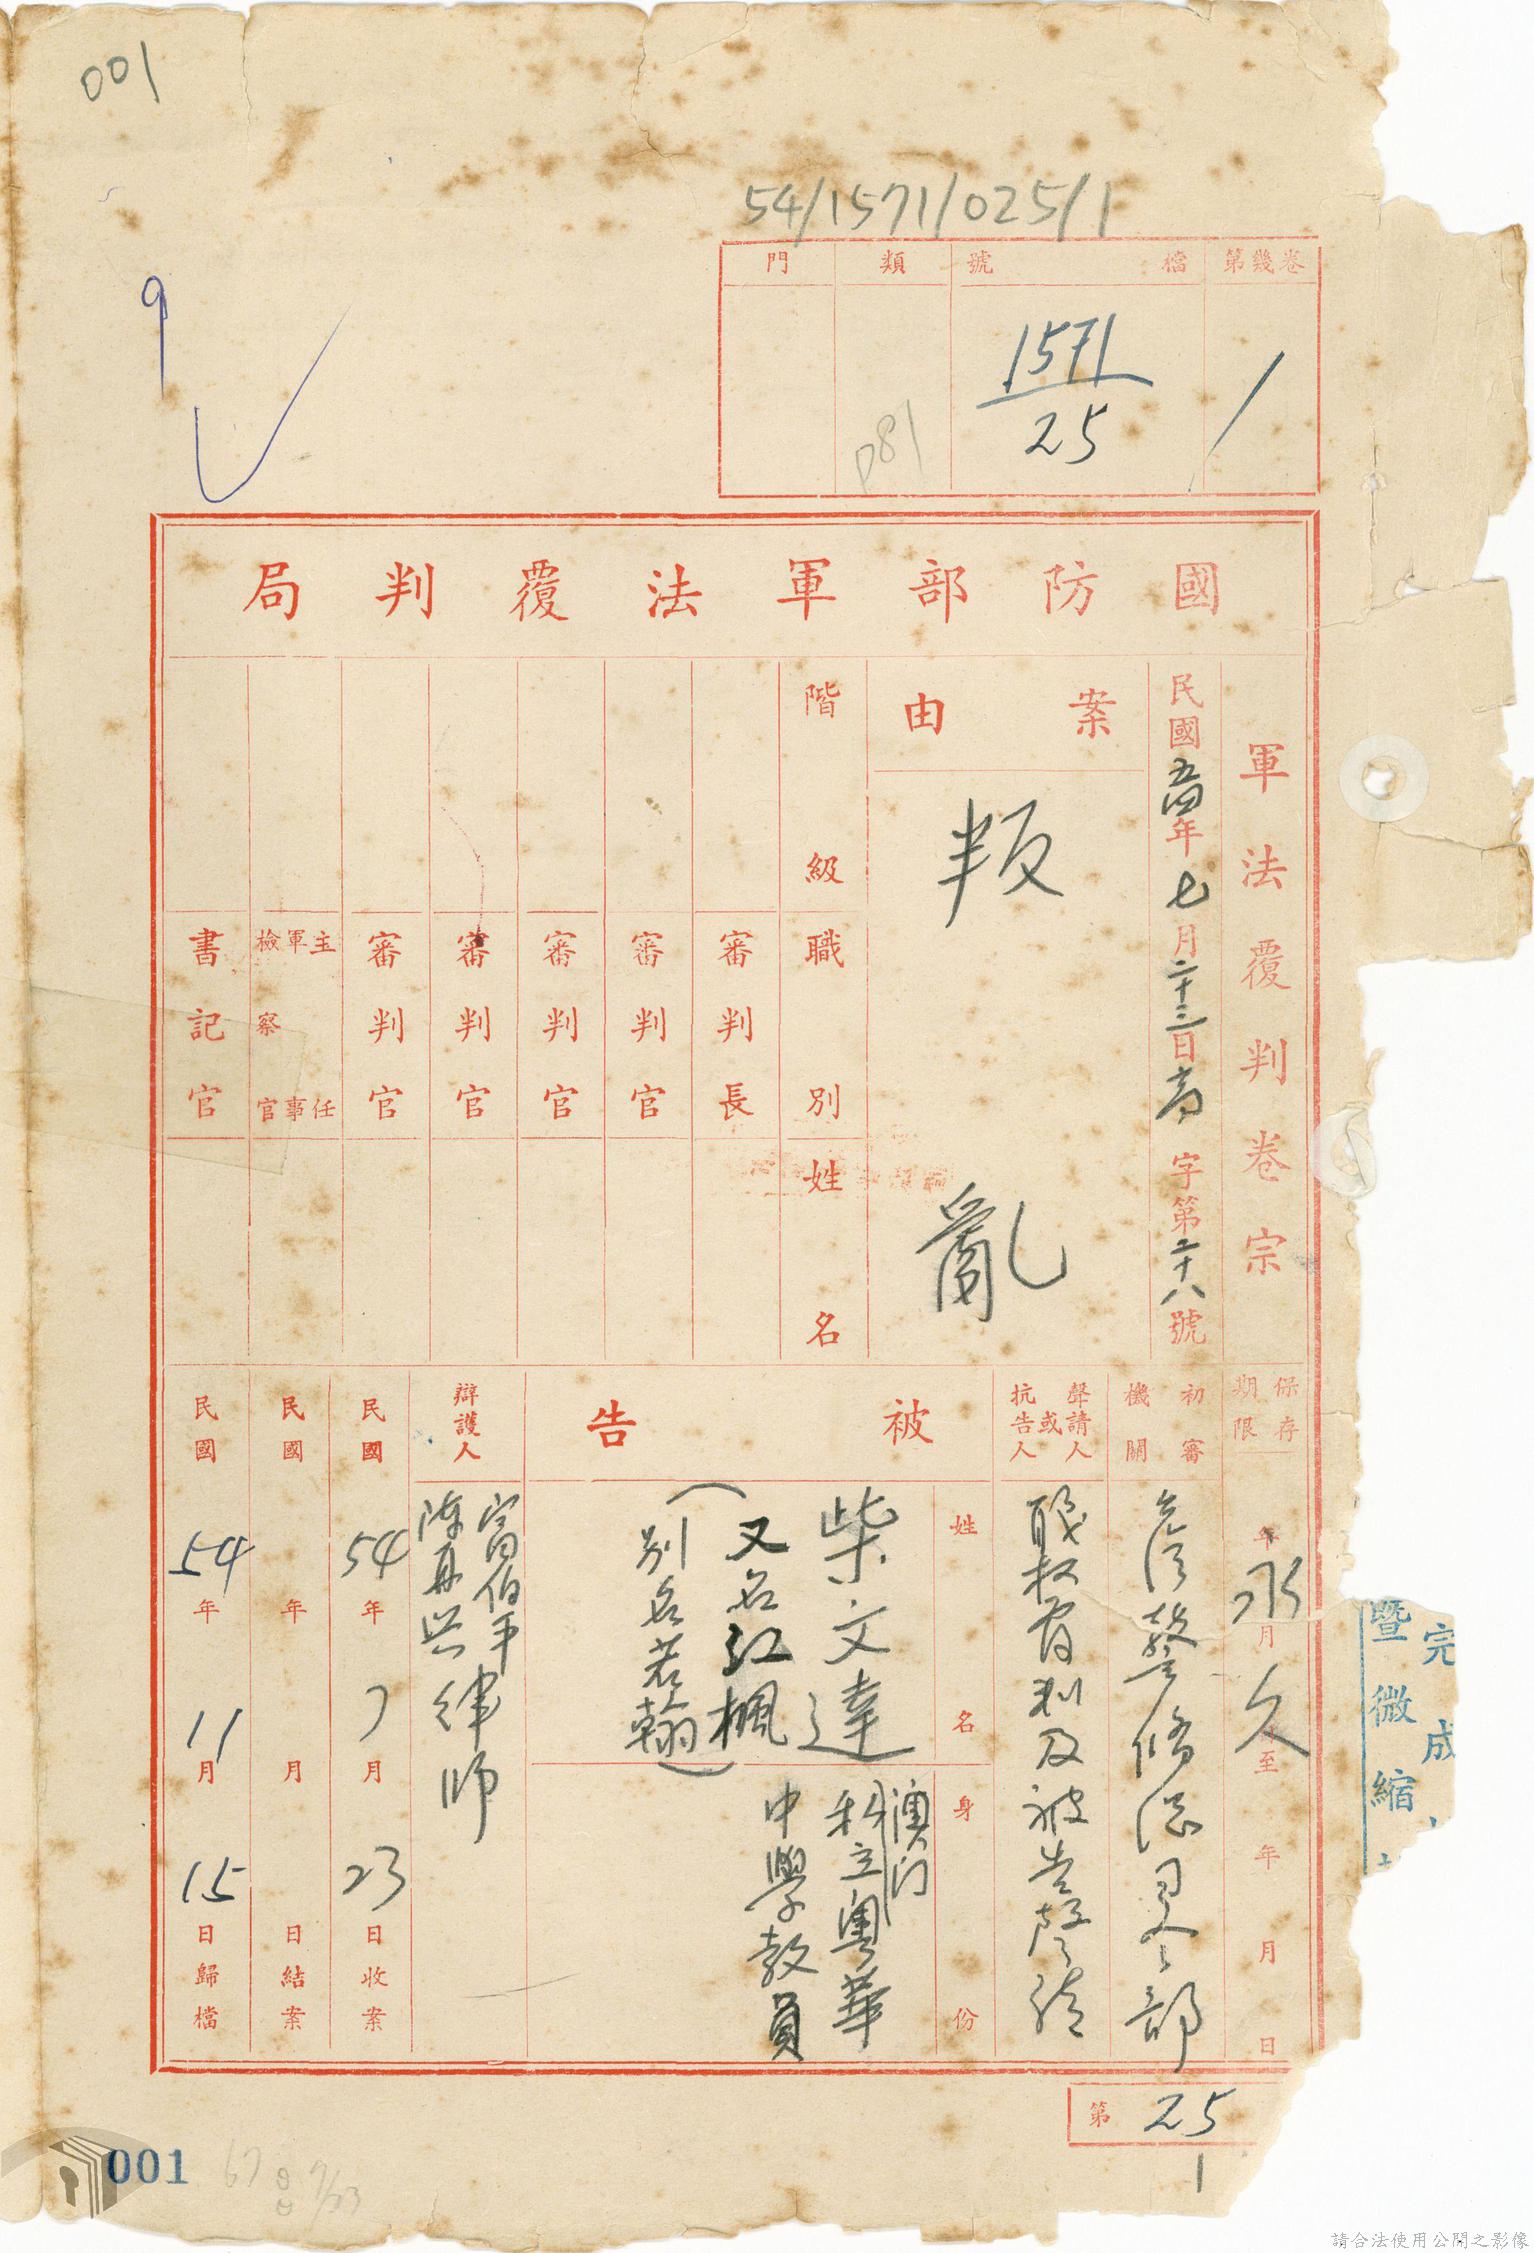 001
54/1571/025/1
第幾卷
檔號
類
門
1571
25
1
P81
9
國防部軍法覆判局
軍法覆判卷宗
民國五四年七月二十三日高字第二十八號
案由
叛亂
階級
職別
姓名
審判長
審判官
審判官
審判官
審判官
主任軍事檢察官
書記官
保存期限
年月至年月日
永久
初審機關
臺灣警備總司令部
聲請人或抗告人
職權有利及被告聲請
被告
姓名
柴文達
(又名江楓
別名若翰)
身份
澳門
私立粵華
中學教員
辯護人
富伯平
陳再興律師
民國54年7月23日收案
民國年月日結案
民國54年11月15日歸檔
第25
1
完成
暨微縮
001
67
7/23
請合法使用公開之影像